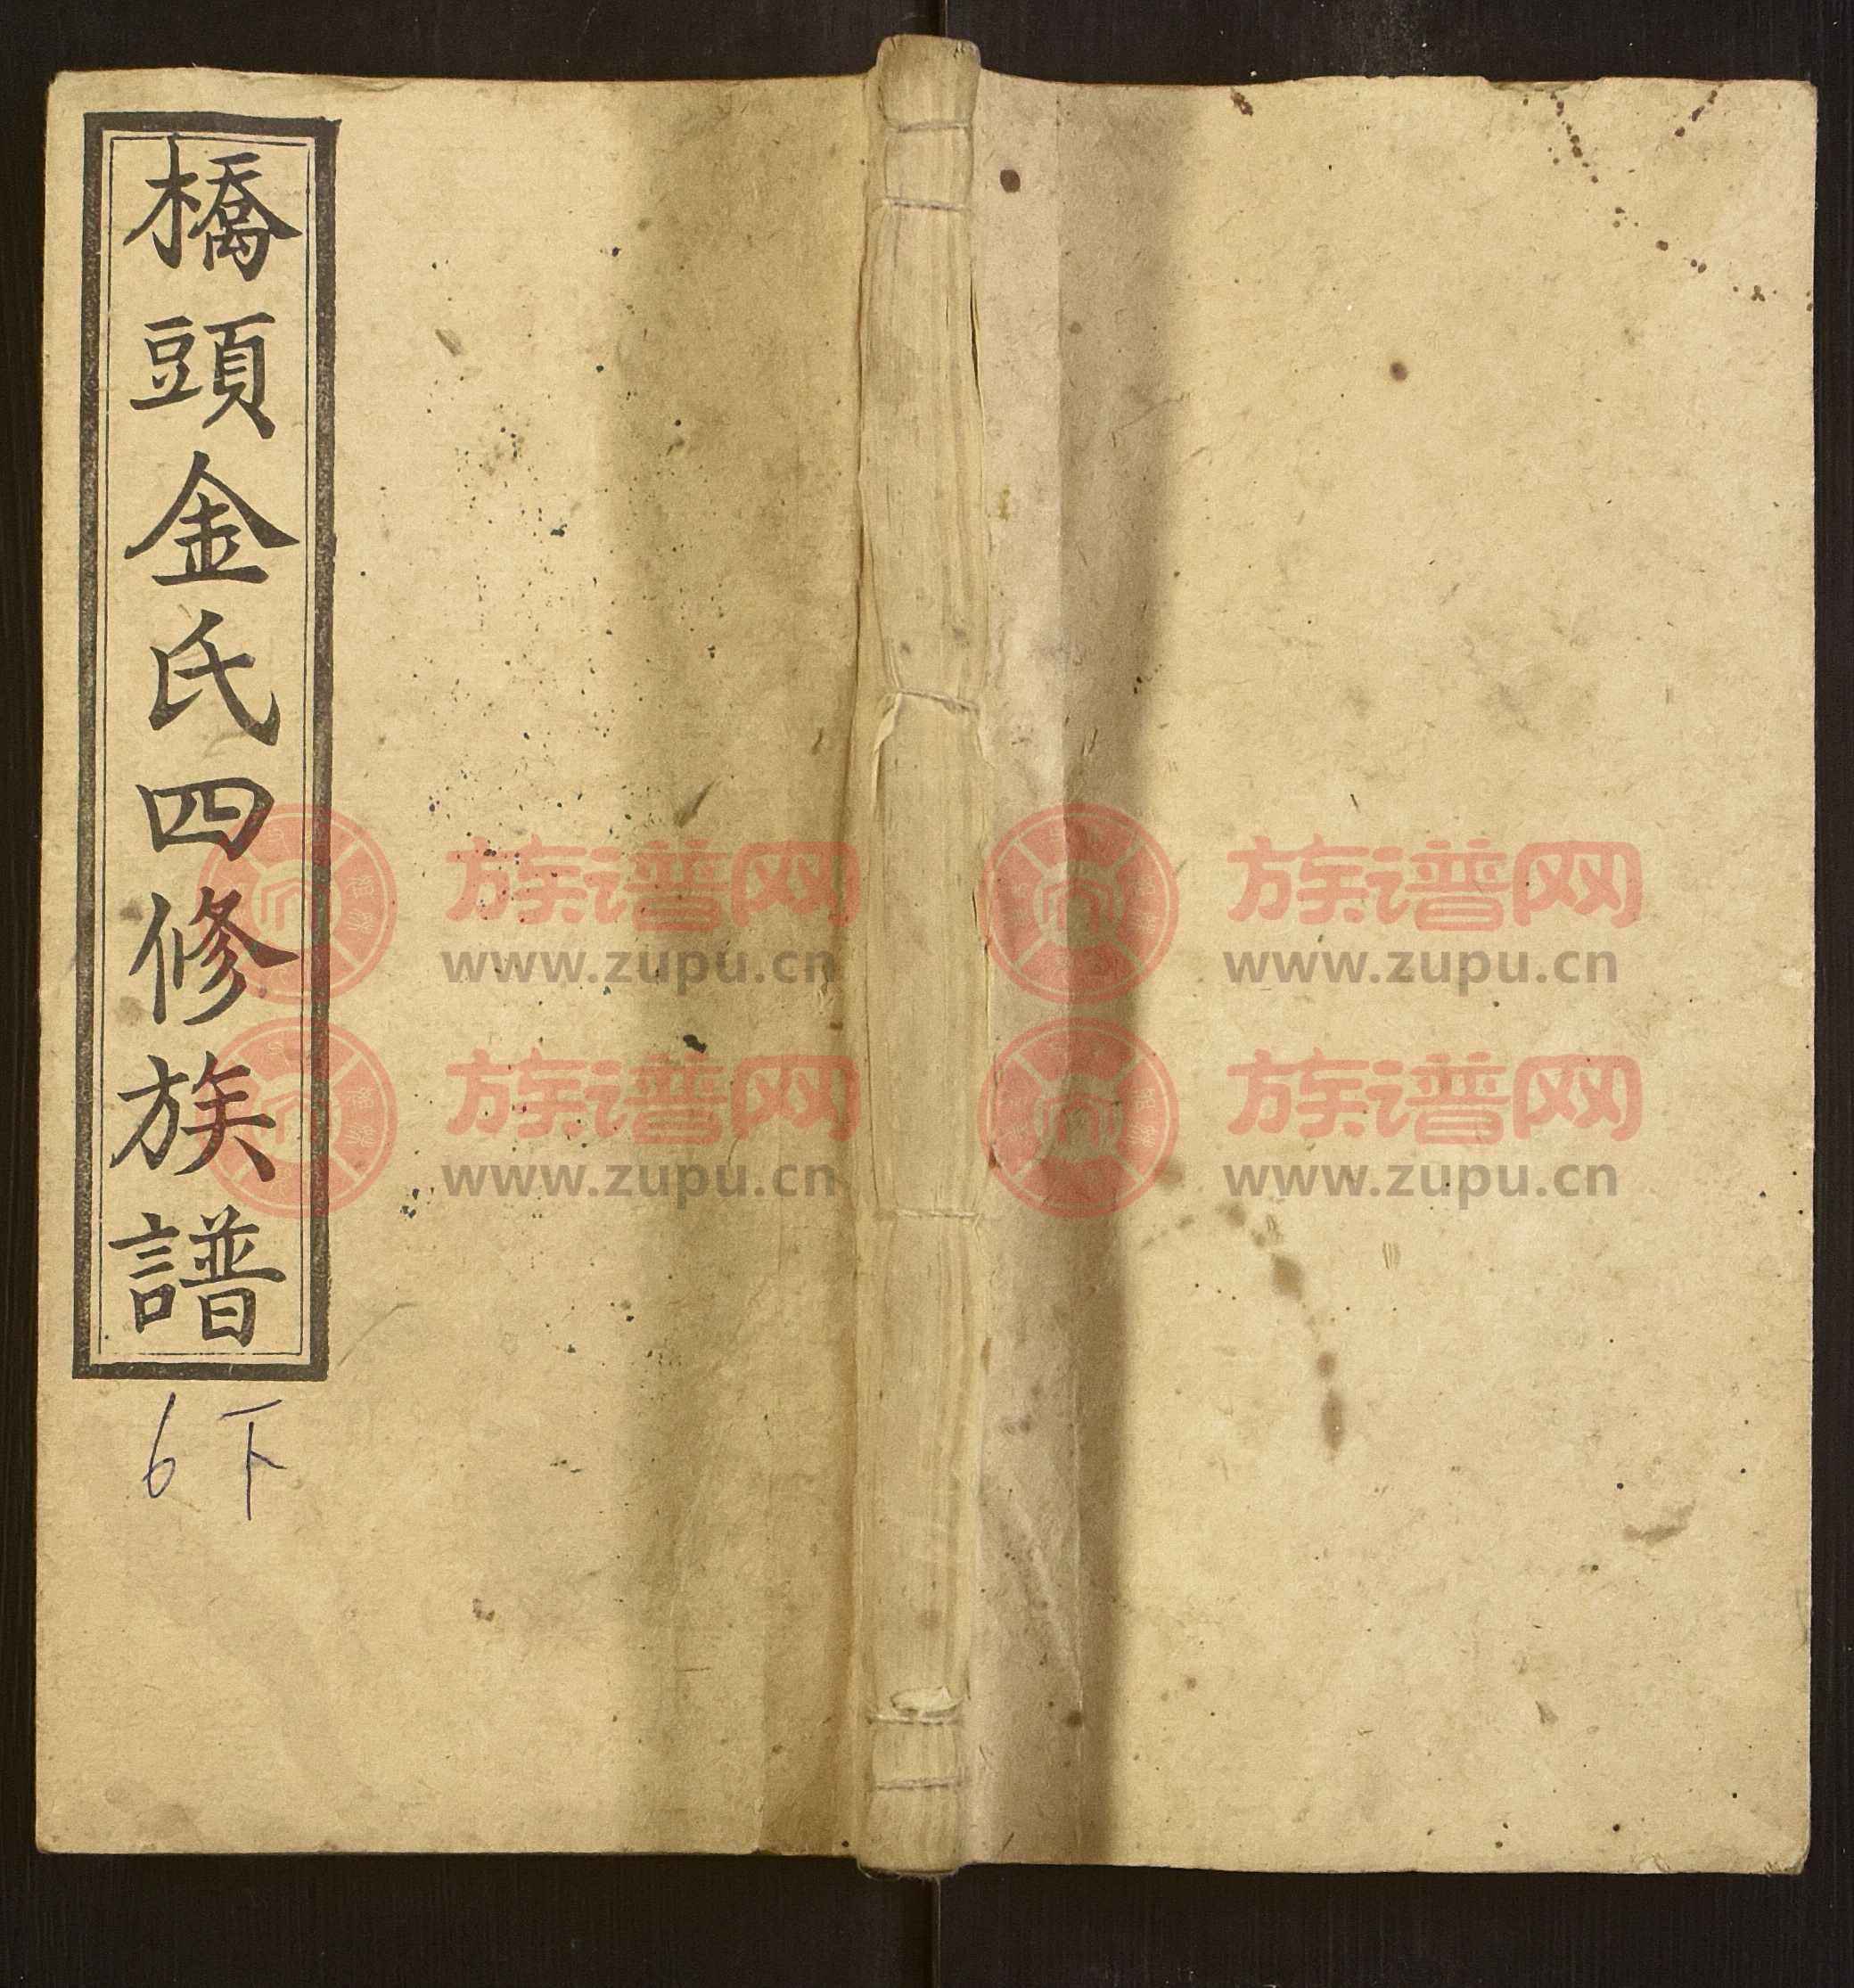 橋頭金氏四修族譜
6下
族谱网
www.zupu.cn
族谱网
www.zupu.cn
族谱网
www.zupu.cn
族谱网
www.zupu.cn